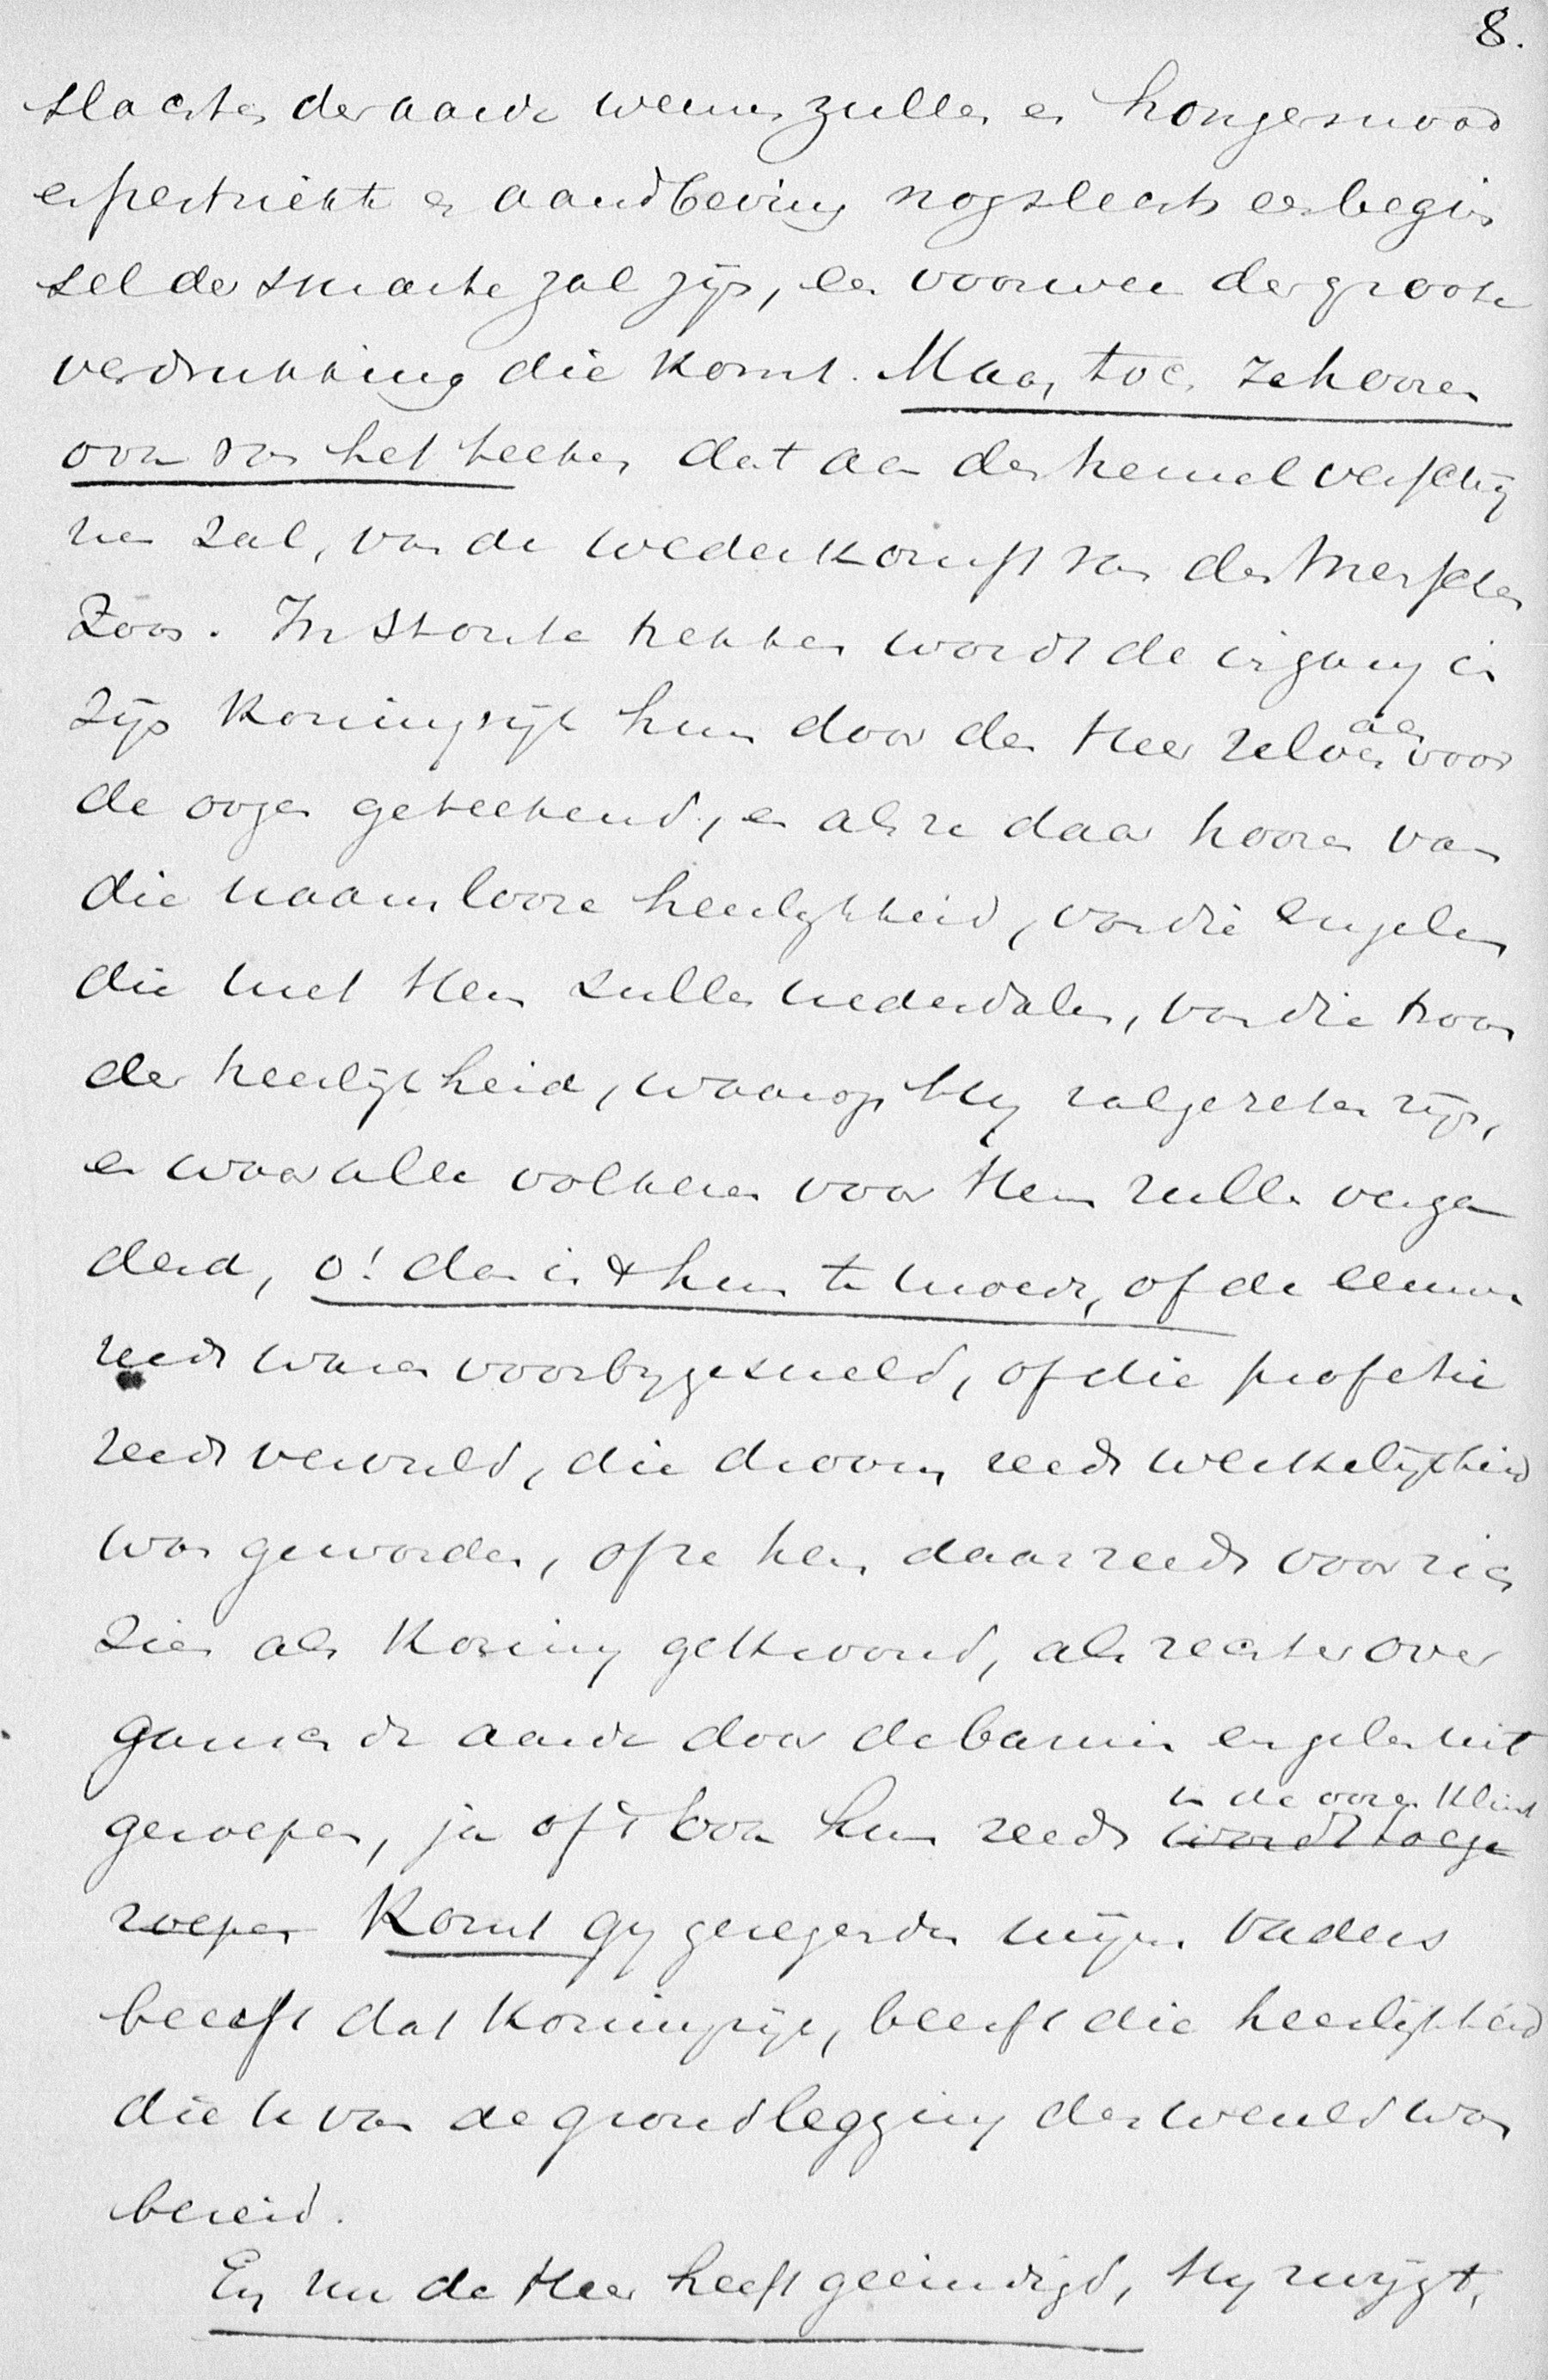 8.
slachten der aarde weenen zullen en hongersnood
en pestziekte en aardbeving nog slechts een begin
sel der smarte zal zijn, een voorwee der groote
verdrukking die komt. Maar toen ze hooren
ook van het teeken dat aan den hemel verschij
nen zal, van de wederkomst van des Menschen
Zoon. In stoute trekken wordt de ingang in
zijn Koningrijk hun door den Heer zelven aan voor
de oogen geteekend, en als ze daar hooren van
die naamlooze heerlykheid, van die engelen
die met Hem zullen nederdalen, van die troon
der heerlijkheid, waarop Hy zal gezeten zijn,
en waar alle volkeren voor Hem zullen verga
derd, o! dan is 't hun te moede, of de eeuwen
reeds waren voorbygesneld, of die profetie
reeds vervuld, die droom reeds werkelijkheid
was geworden, of ze hem daar reeds voor zich
zien als Koning gekroond, als rechter over
gansch de aarde door de bazuin engelen uit
geroepen, ja of 't ook hun reeds in de ooren klinkt
wordt toege
roepen Komt gy gezegenden mijns Vaders
beerft dat Koningrijk, beerft die heerlijkheid
die u van de grondlegging der wereld was
bereid.
En nu de Heer heeft geeindigd, Hy zwijgt,